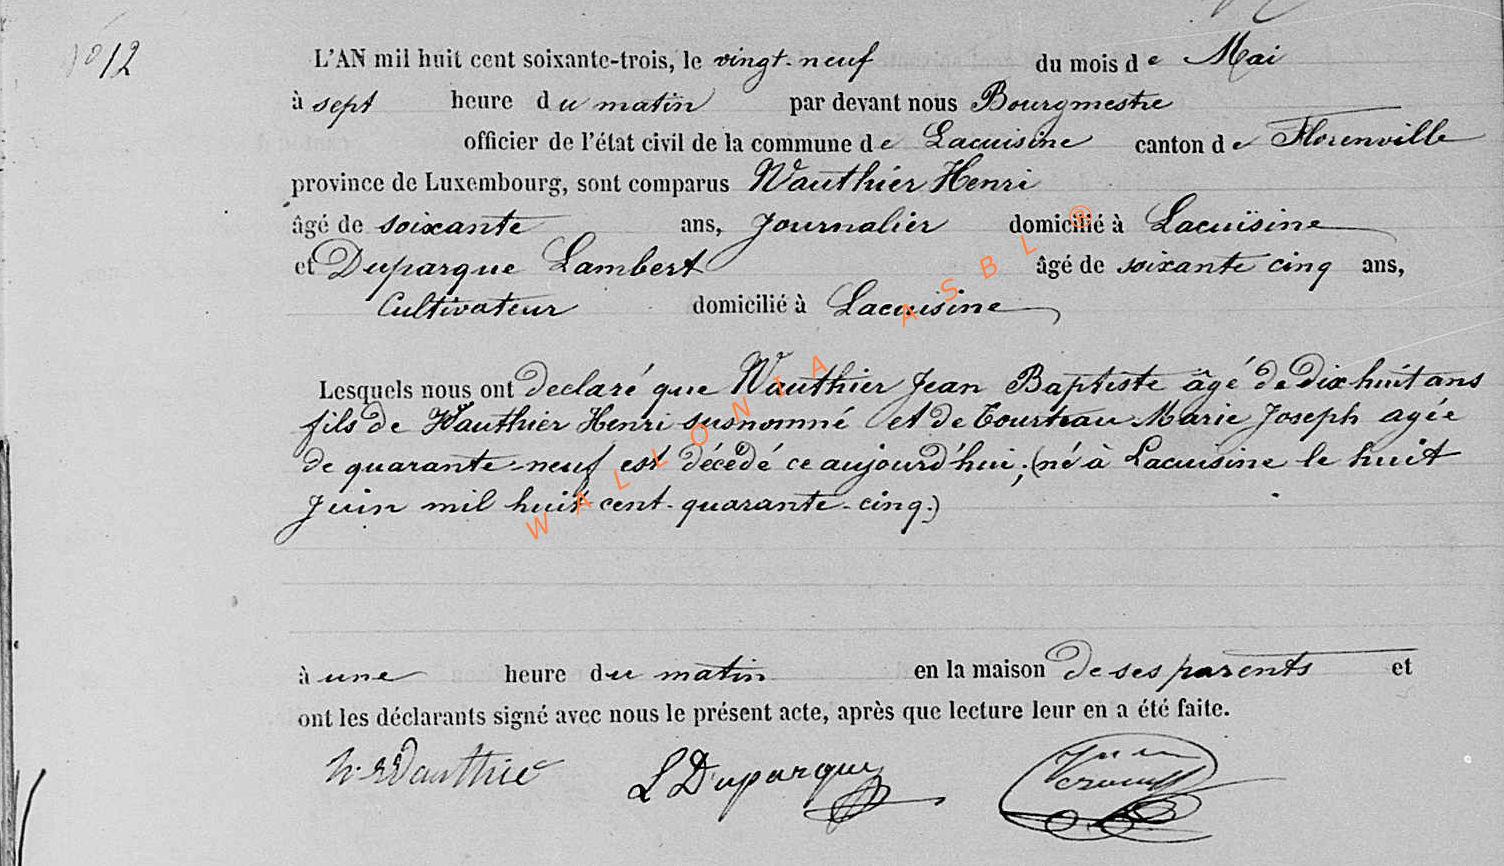 N° 12
L'AN mil huit cent soixante-trois, le vingt-neuf du mois de Mai
à sept heure du matin par devant nous Bourgmestre
officier de l'état civil de la commune de Lacuisine canton de Florenville
province de Luxembourg, sont comparus Wauthier Henri
âgé de soixante ans, Journalier domicilié à Lacuisine
et Duparque Lambert âgé de soixante cinq ans,
Cultivateur domicilié à Lacuisine
Lesquels nous ont declaré que Wauthier Jean Baptiste âgé de dix huit ans
fils de Wauthier Henri susnommé et de Tourteau Marie Joseph agée
de quarante-neuf est décédé ce aujourd'hui, (né à Lacuisine le huit
Juin mil huit cent-quarante-cinq.)
à une heure du matin en la maison de ses parents et
ont les déclarants signé avec nous le présent acte, après que lecture leur en a été faite.
h. Wauthie L Duparque
WALLONIA ASBL ®